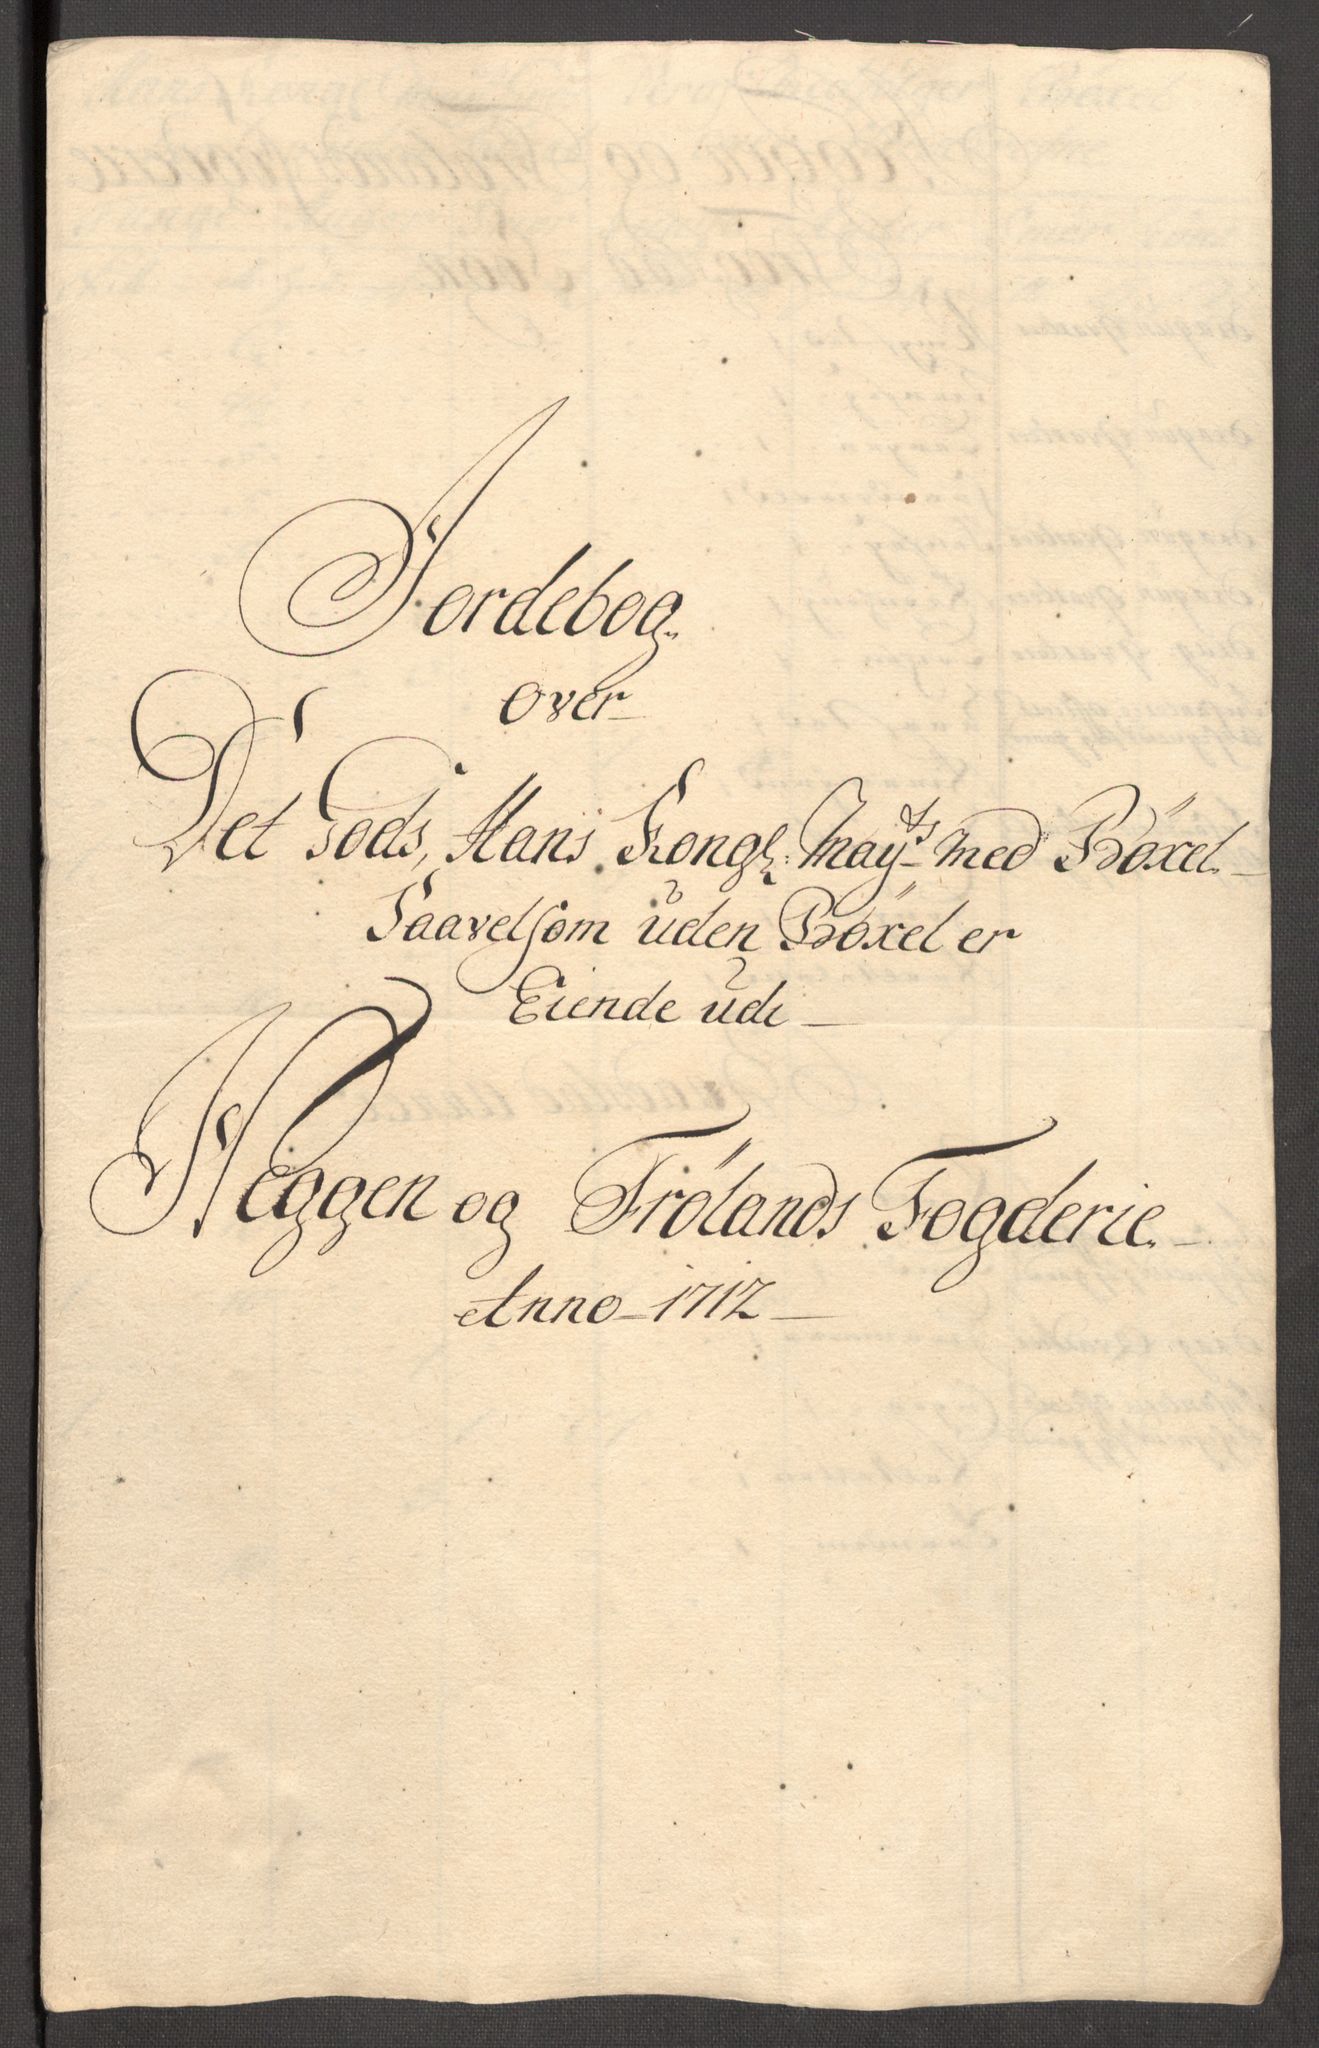 Jordebog
over
Det Gods, Hans Kongl: May:ts med Böxel
Saavelsom uden Böxel er
Eiende udi
Heggen og Frölands Fogderie
Anno 1712